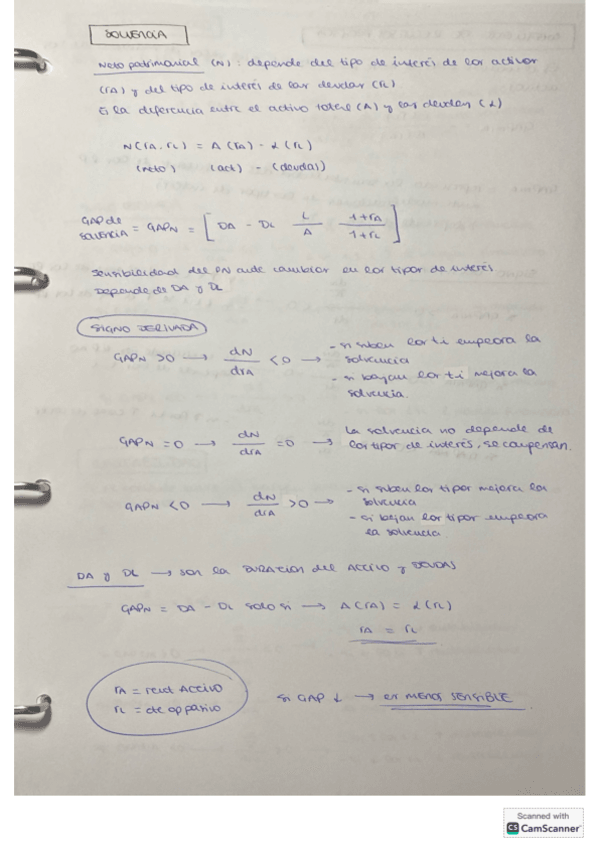 SOLVENCIA
Neto patrimonial (N): depende del tipo de interés de los activos
(rA) y del tipo de interés de las deudas (rL)
Es la diferencia entre el activo total (A) y las deudas (L)
N(rA, rL) = A(rA) - L(rL)
(neto) (act) - (deudas)
GAP de
SOLVENCIA = GAPN = [ DA - DL L/A 1+rA/1+rL ]
Sensibilidad del PN ante cambios en los tipos de interés
Depende de DA y DL
SIGNO DERIVADA
GAPN >0 → dN/drA <0 → - si suben los ti empeora la
solvencia
- si bajan los ti mejora la
solvencia.
GAPN =0 → dN/drA =0 → La solvencia no depende de
los tipos de interés, se compensan.
GAPN <0 → dN/drA >0 → - si suben los tipos mejora la
solvencia
- si bajan los tipos empeora
la solvencia
DA y DL → son la DURACION del ACTIVO y DEUDAS
GAPN = DA - DL solo si → A(rA) = L(rL)
rA = rL
rA = rent ACTIVO
rL = de
si GAP ↓ → es MENOS SENSIBLE
Scanned with
CS CamScanner